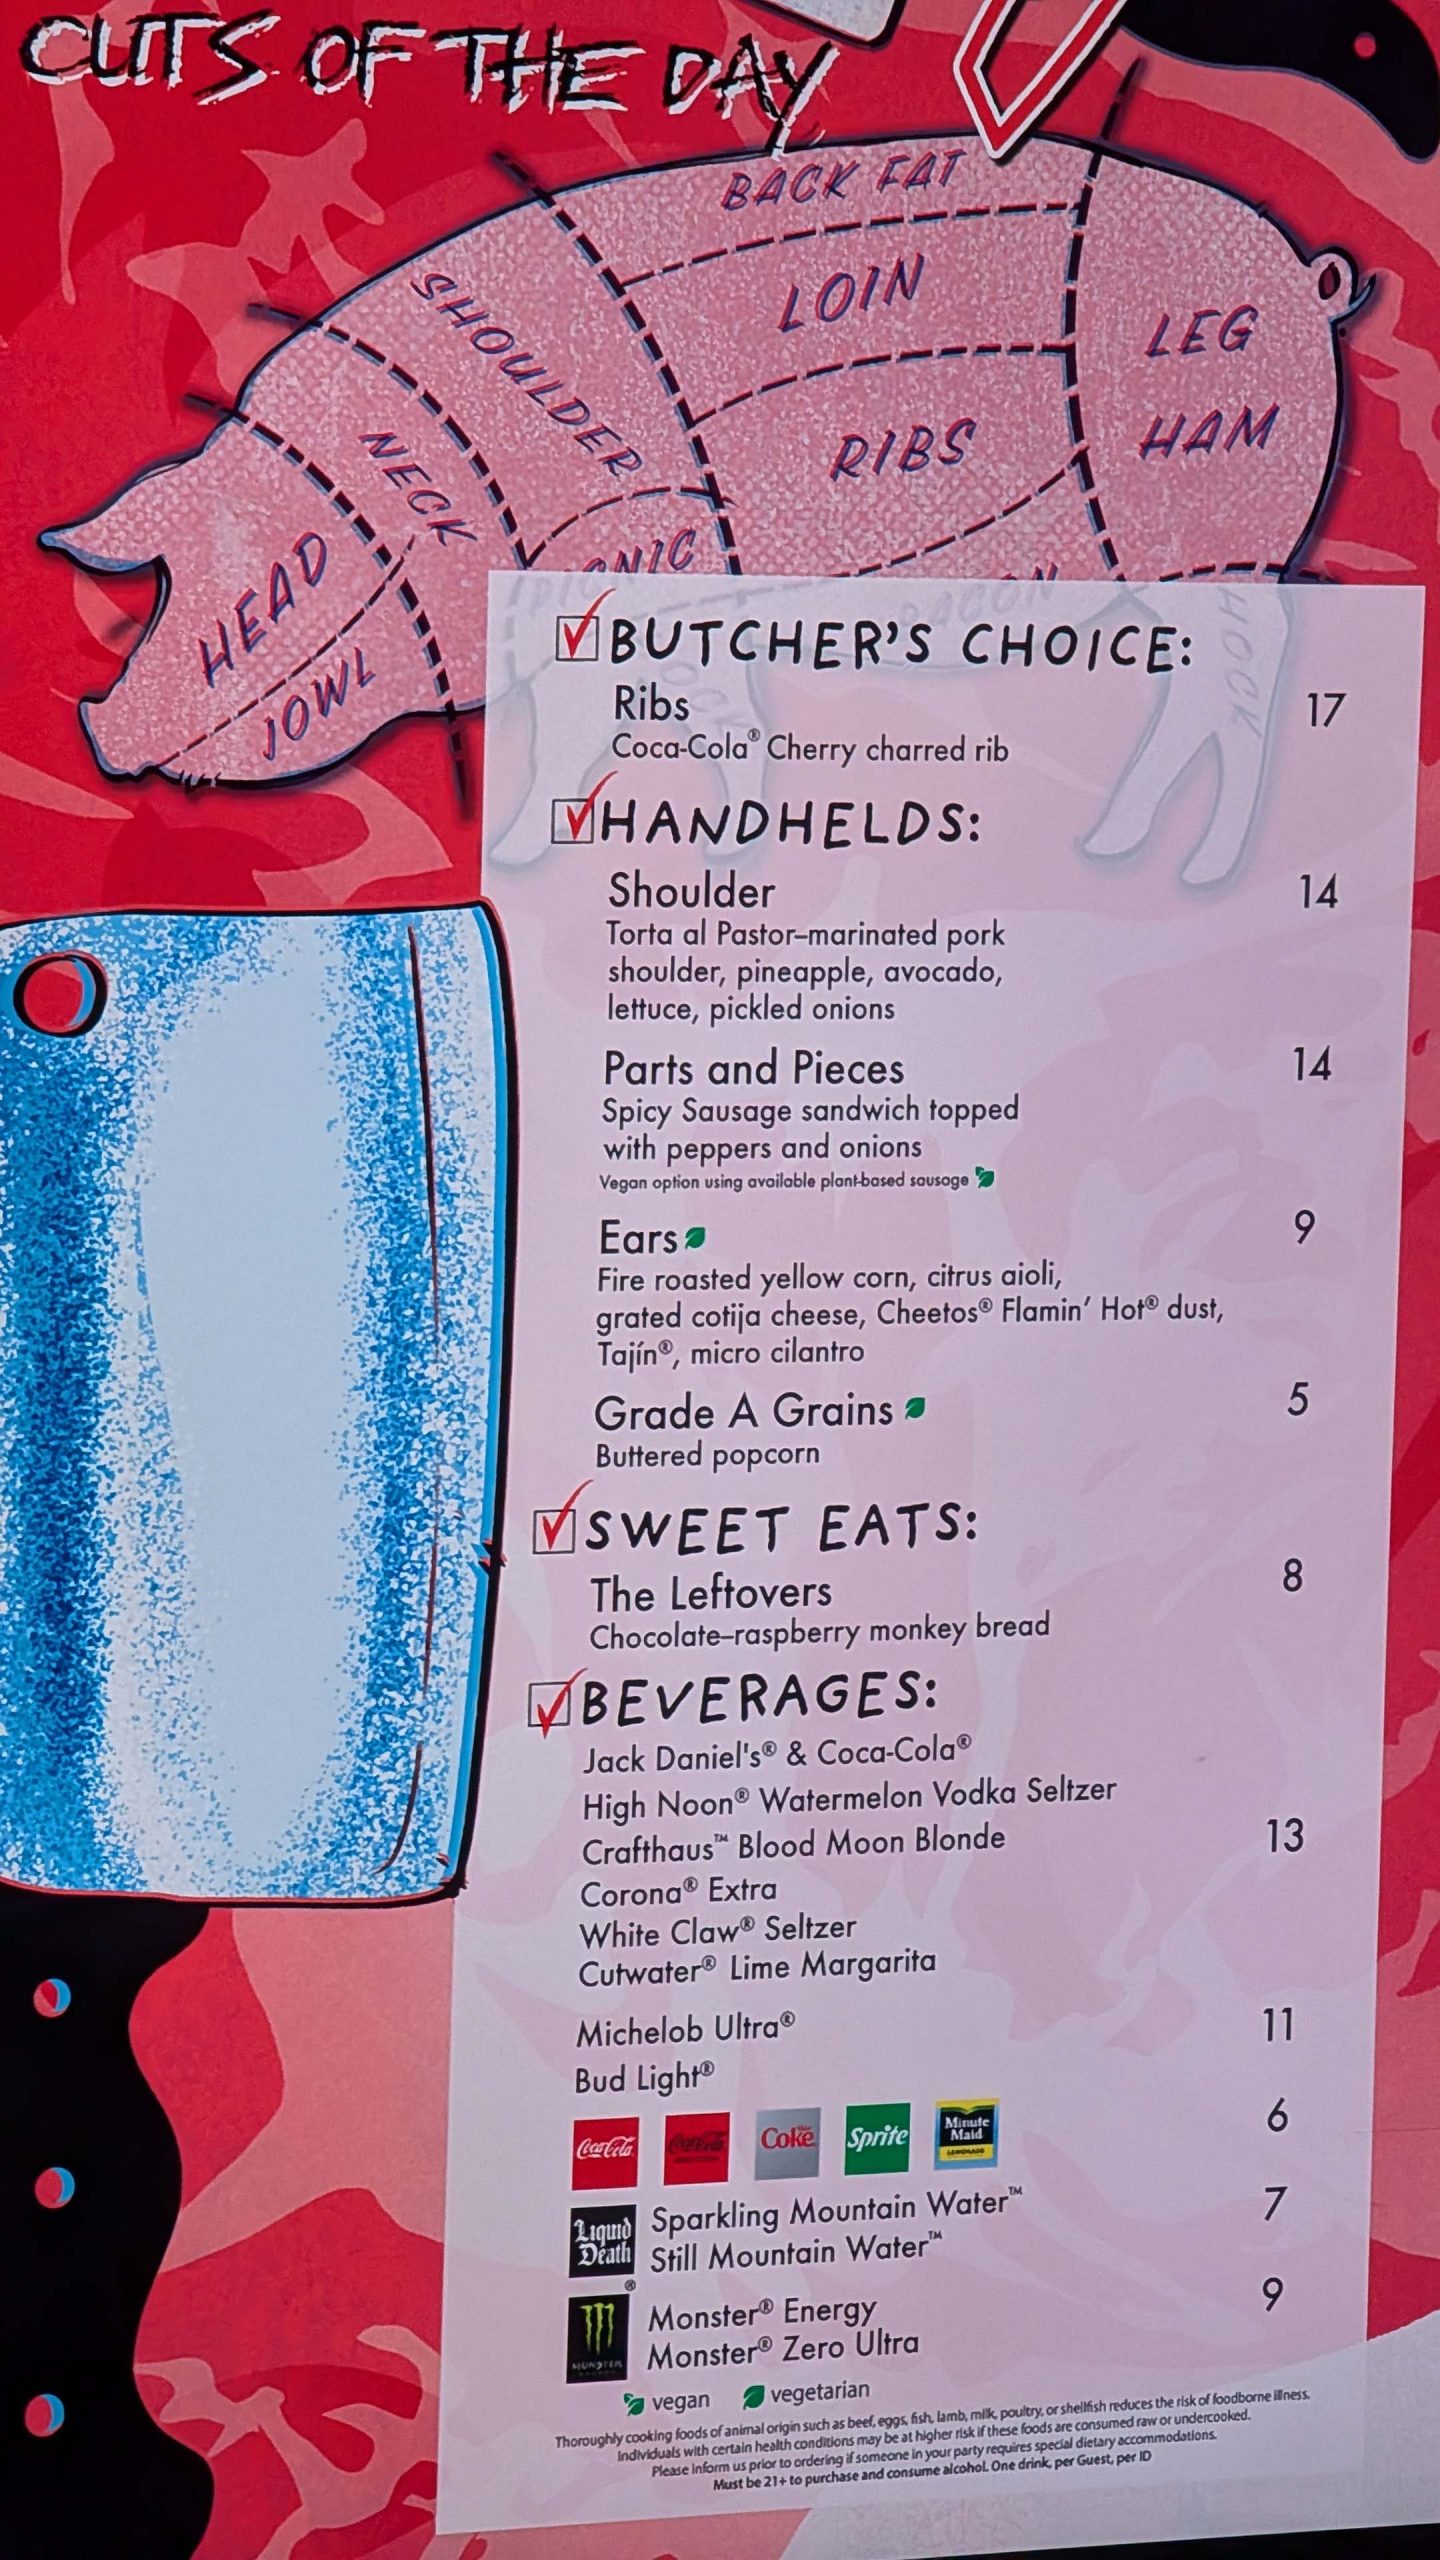 CUTS OF THE DAY
BACK FAT
LOIN
LEG
HAM
SHOULDER
RIBS
NECK
PICNIC
BACON
HEAD
JOWL
HOCK
HOCK
BUTCHER'S CHOICE:
Ribs 17
Coca-Cola® Cherry charred rib
HANDHELDS:
Shoulder 14
Torta al Pastor–marinated pork
shoulder, pineapple, avocado,
lettuce, pickled onions
Parts and Pieces 14
Spicy Sausage sandwich topped
with peppers and onions
Vegan option using available plant-based sausage
Ears 9
Fire roasted yellow corn, citrus aioli,
grated cotija cheese, Cheetos® Flamin' Hot® dust,
Tajín®, micro cilantro
Grade A Grains 5
Buttered popcorn
SWEET EATS:
The Leftovers 8
Chocolate–raspberry monkey bread
BEVERAGES:
Jack Daniel's® & Coca-Cola®
High Noon® Watermelon Vodka Seltzer
Crafthaus™ Blood Moon Blonde 13
Corona® Extra
White Claw® Seltzer
Cutwater® Lime Margarita
Michelob Ultra® 11
Bud Light®
Coca-Cola Coca-Cola Coke Sprite Minute Maid LEMONADE 6
Liquid Death® Sparkling Mountain Water™ 7
Still Mountain Water™
MONSTER Monster® Energy 9
Monster® Zero Ultra
vegan vegetarian
Thoroughly cooking foods of animal origin such as beef, eggs, fish, lamb, milk, poultry, or shellfish reduces the risk of foodborne illness.
Individuals with certain health conditions may be at higher risk if these foods are consumed raw or undercooked.
Please inform us prior to ordering if someone in your party requires special dietary accommodations.
Must be 21+ to purchase and consume alcohol. One drink, per Guest, per ID